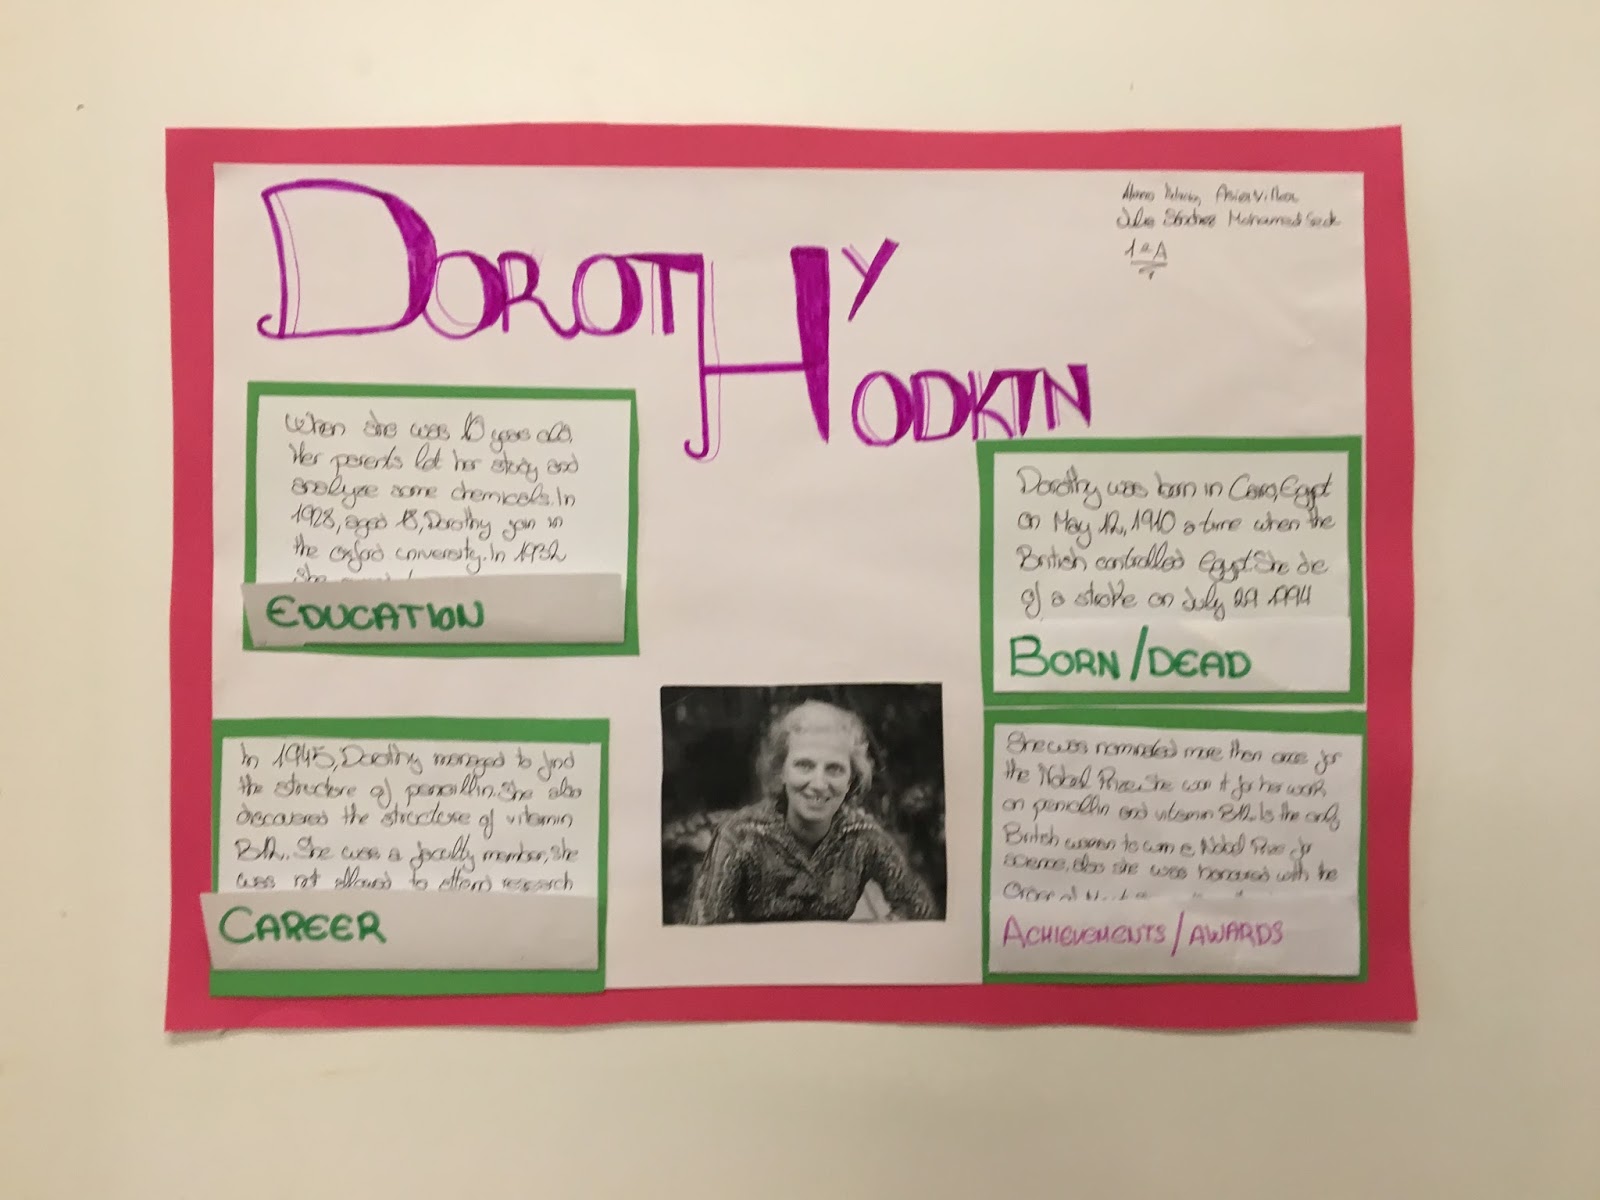 DOROTHY
HODKIN
Asier Villora
Mohamed Seck
1ºA
When she was 10 years old,
Her parents let her study and
analyze some chemicals. In
1928, aged 18, Dorothy join in
the oxford university. In 1932
she
EDUCATION
Dorothy was born in Cairo, Egypt
on May 12, 1910 a time when the
British controlled Egypt. She die
of a stroke on July 29 1994
BORN/DEAD
In 1945, Dorothy managed to find
the structure of penicillin. She also
discovered the structure of vitamin
B12. She was a faculty member, she
was not allowed to attend research
CAREER
She was nominated more then once for
the Nobel Prize. She won it for her work
on penicillin and vitamin B12. Is the only
British women to win a Nobel Prize for
science, also she was honoured with the
Order of
ACHIEVEMENTS/AWARDS